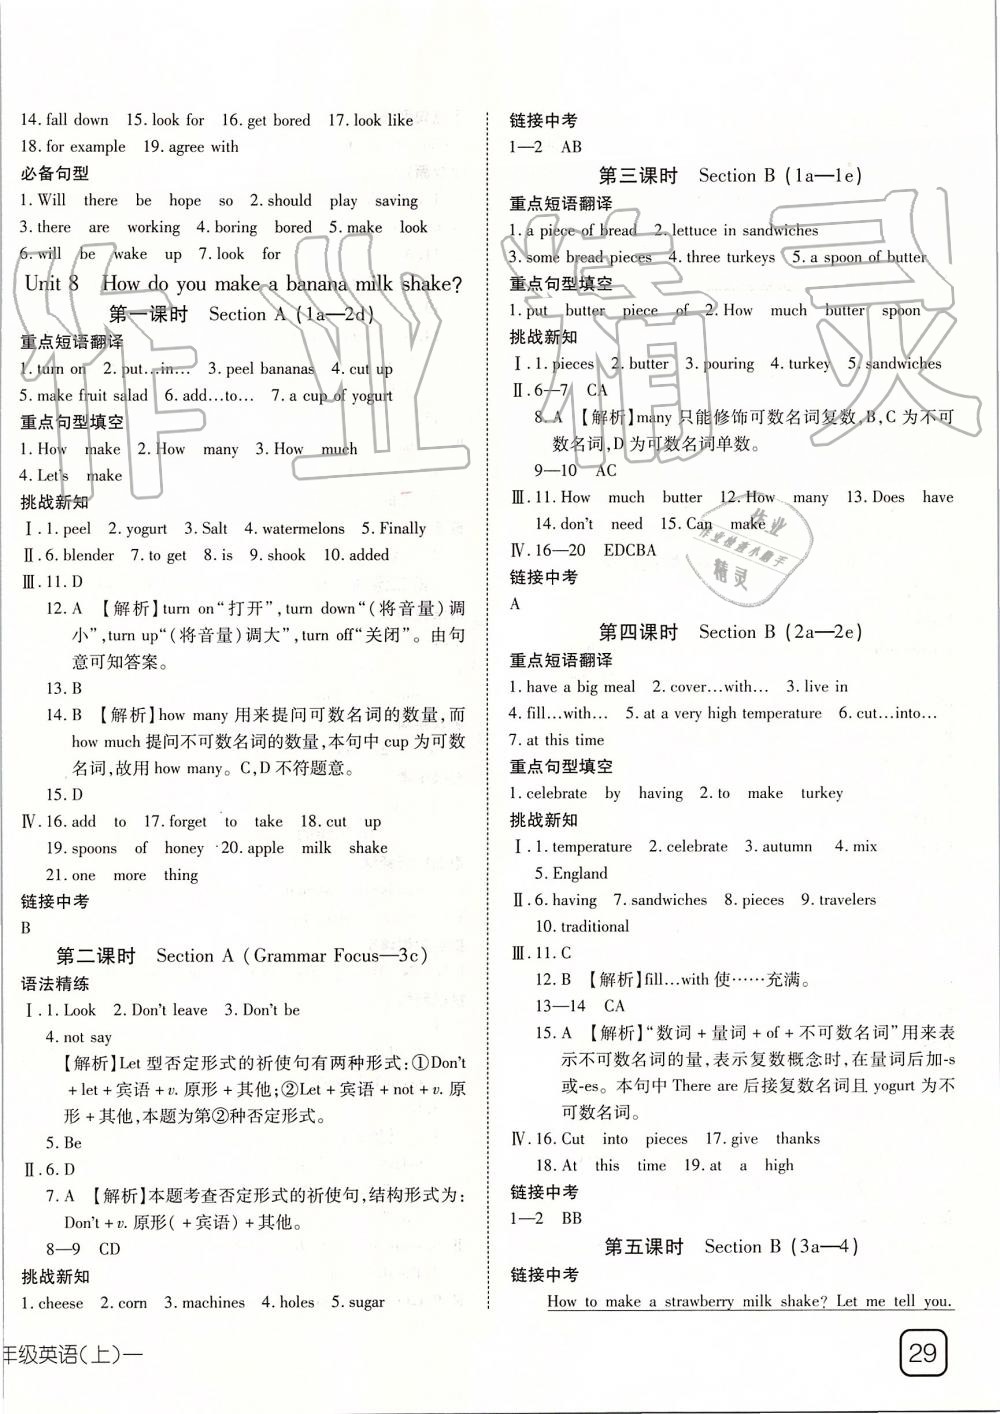 14. fall down 15. look for 16. get bored 17. look like
18. for example 19. agree with
必备句型
1. Will there be hope so 2. should play saving
3. there are working 4. boring bored 5. make look
6. will be wake up 7. look for
Unit 8 How do you make a banana milk shake?
第一课时 Section A (1a—2d)
重点短语翻译
1. turn on 2. put…in… 3. peel bananas 4. cut up
5. make fruit salad 6. add…to… 7. a cup of yogurt
重点句型填空
1. How make 2. How many 3. How much
4. Let's make
挑战新知
Ⅰ. 1. peel 2. yogurt 3. Salt 4. watermelons 5. Finally
Ⅱ. 6. blender 7. to get 8. is 9. shook 10. added
Ⅲ. 11. D
12. A 【解析】turn on“打开”,turn down“(将音量)调
小”,turn up“(将音量)调大”,turn off“关闭”。由句
意可知答案。
13. B
14. B 【解析】how many 用来提问可数名词的数量,而
how much 提问不可数名词的数量,本句中 cup 为可数
名词,故用 how many。C,D 不符题意。
15. D
Ⅳ. 16. add to 17. forget to take 18. cut up
19. spoons of honey 20. apple milk shake
21. one more thing
链接中考
B
第二课时 Section A (Grammar Focus—3c)
语法精练
Ⅰ. 1. Look 2. Don't leave 3. Don't be
4. not say
【解析】Let 型否定形式的祈使句有两种形式:①Don't
+let+宾语+v. 原形+其他;②Let+宾语+not+v. 原
形+其他,本题为第②种否定形式。
5. Be
Ⅱ. 6. D
7. A 【解析】本题考查否定形式的祈使句,结构形式为:
Don't+v. 原形(+宾语)+其他。
8—9 CD
挑战新知
1. cheese 2. corn 3. machines 4. holes 5. sugar
年级英语(上)—
链接中考
1—2 AB
第三课时 Section B (1a—1e)
重点短语翻译
1. a piece of bread 2. lettuce in sandwiches
3. some bread pieces 4. three turkeys 5. a spoon of butter
重点句型填空
1. put butter piece of 2. How much butter spoon
挑战新知
Ⅰ. 1. pieces 2. butter 3. pouring 4. turkey 5. sandwiches
Ⅱ. 6—7 CA
8. A 【解析】many 只能修饰可数名词复数,B,C 为不可
数名词,D 为可数名词单数。
9—10 AC
Ⅲ. 11. How much butter 12. How many 13. Does have
14. don't need 15. Can make
Ⅳ. 16—20 EDCBA
链接中考
A
第四课时 Section B (2a—2e)
重点短语翻译
1. have a big meal 2. cover…with… 3. live in
4. fill…with… 5. at a very high temperature 6. cut…into…
7. at this time
重点句型填空
1. celebrate by having 2. to make turkey
挑战新知
Ⅰ. 1. temperature 2. celebrate 3. autumn 4. mix
5. England
Ⅱ. 6. having 7. sandwiches 8. pieces 9. travelers
10. traditional
Ⅲ. 11. C
12. B 【解析】fill…with 使……充满。
13—14 CA
15. A 【解析】“数词+量词+of+不可数名词”用来表
示不可数名词的量,表示复数概念时,在量词后加-s
或-es。本句中 There are 后接复数名词且 yogurt 为不
可数名词。
Ⅳ. 16. Cut into pieces 17. give thanks
18. At this time 19. at a high
链接中考
1—2 BB
第五课时 Section B (3a—4)
链接中考
How to make a strawberry milk shake? Let me tell you.
29
作业精灵
作业
作业检查小助手
精灵